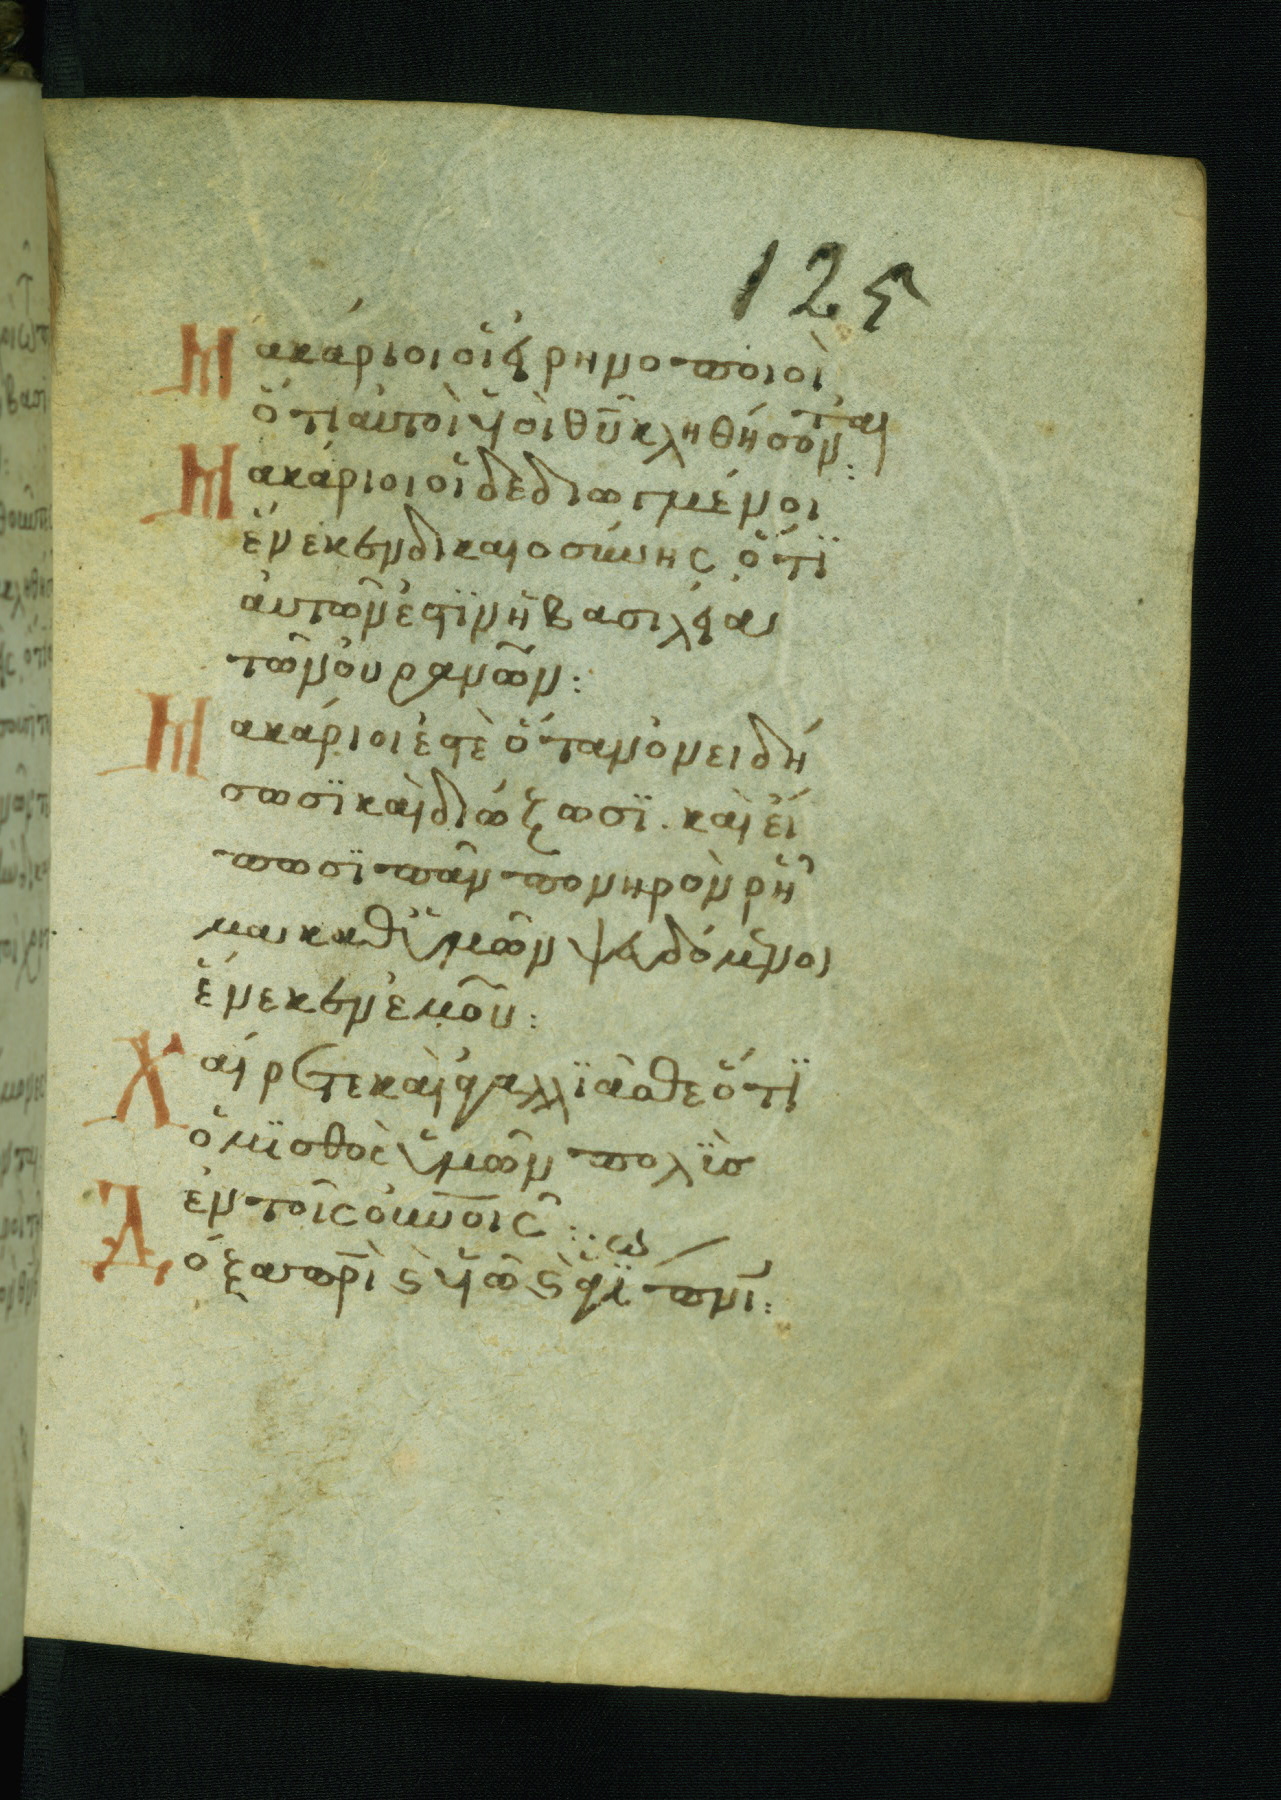 125
Μακάριοι οἱ εἰρηνοποιοὶ
ὅτι αὐτοὶ ὑοὶ θῦ κληθήσονται:
Μακάριοι οἱ δεδιωγμένοι
ἕνεκεν δικαιοσύνης ὅτϊ
αὐτῶν ἐστϊν ἡ βασιλεία
τῶν οὐρανῶν:
Μακάριοι ἐστὲ ὅταν ὀνειδή
σωσϊ καὶ διώξωσϊ. καὶ εἴ
πωσϊ πᾶν πονηρὸν ῥῆ
μα καθ ὑμῶν ψευδόμενοι
ἕνεκεν ἐμοῦ:
Χαίρετε καὶ ἀγαλλϊᾶσθε ὅτϊ
ὁ μϊσθὸς ὑμῶν πολϊὸσ
ἐν τοῖς οὐνοῖς:
Δόξα πρὶ ϛ ὑῶ ϛ ἁγϊω πνϊ: